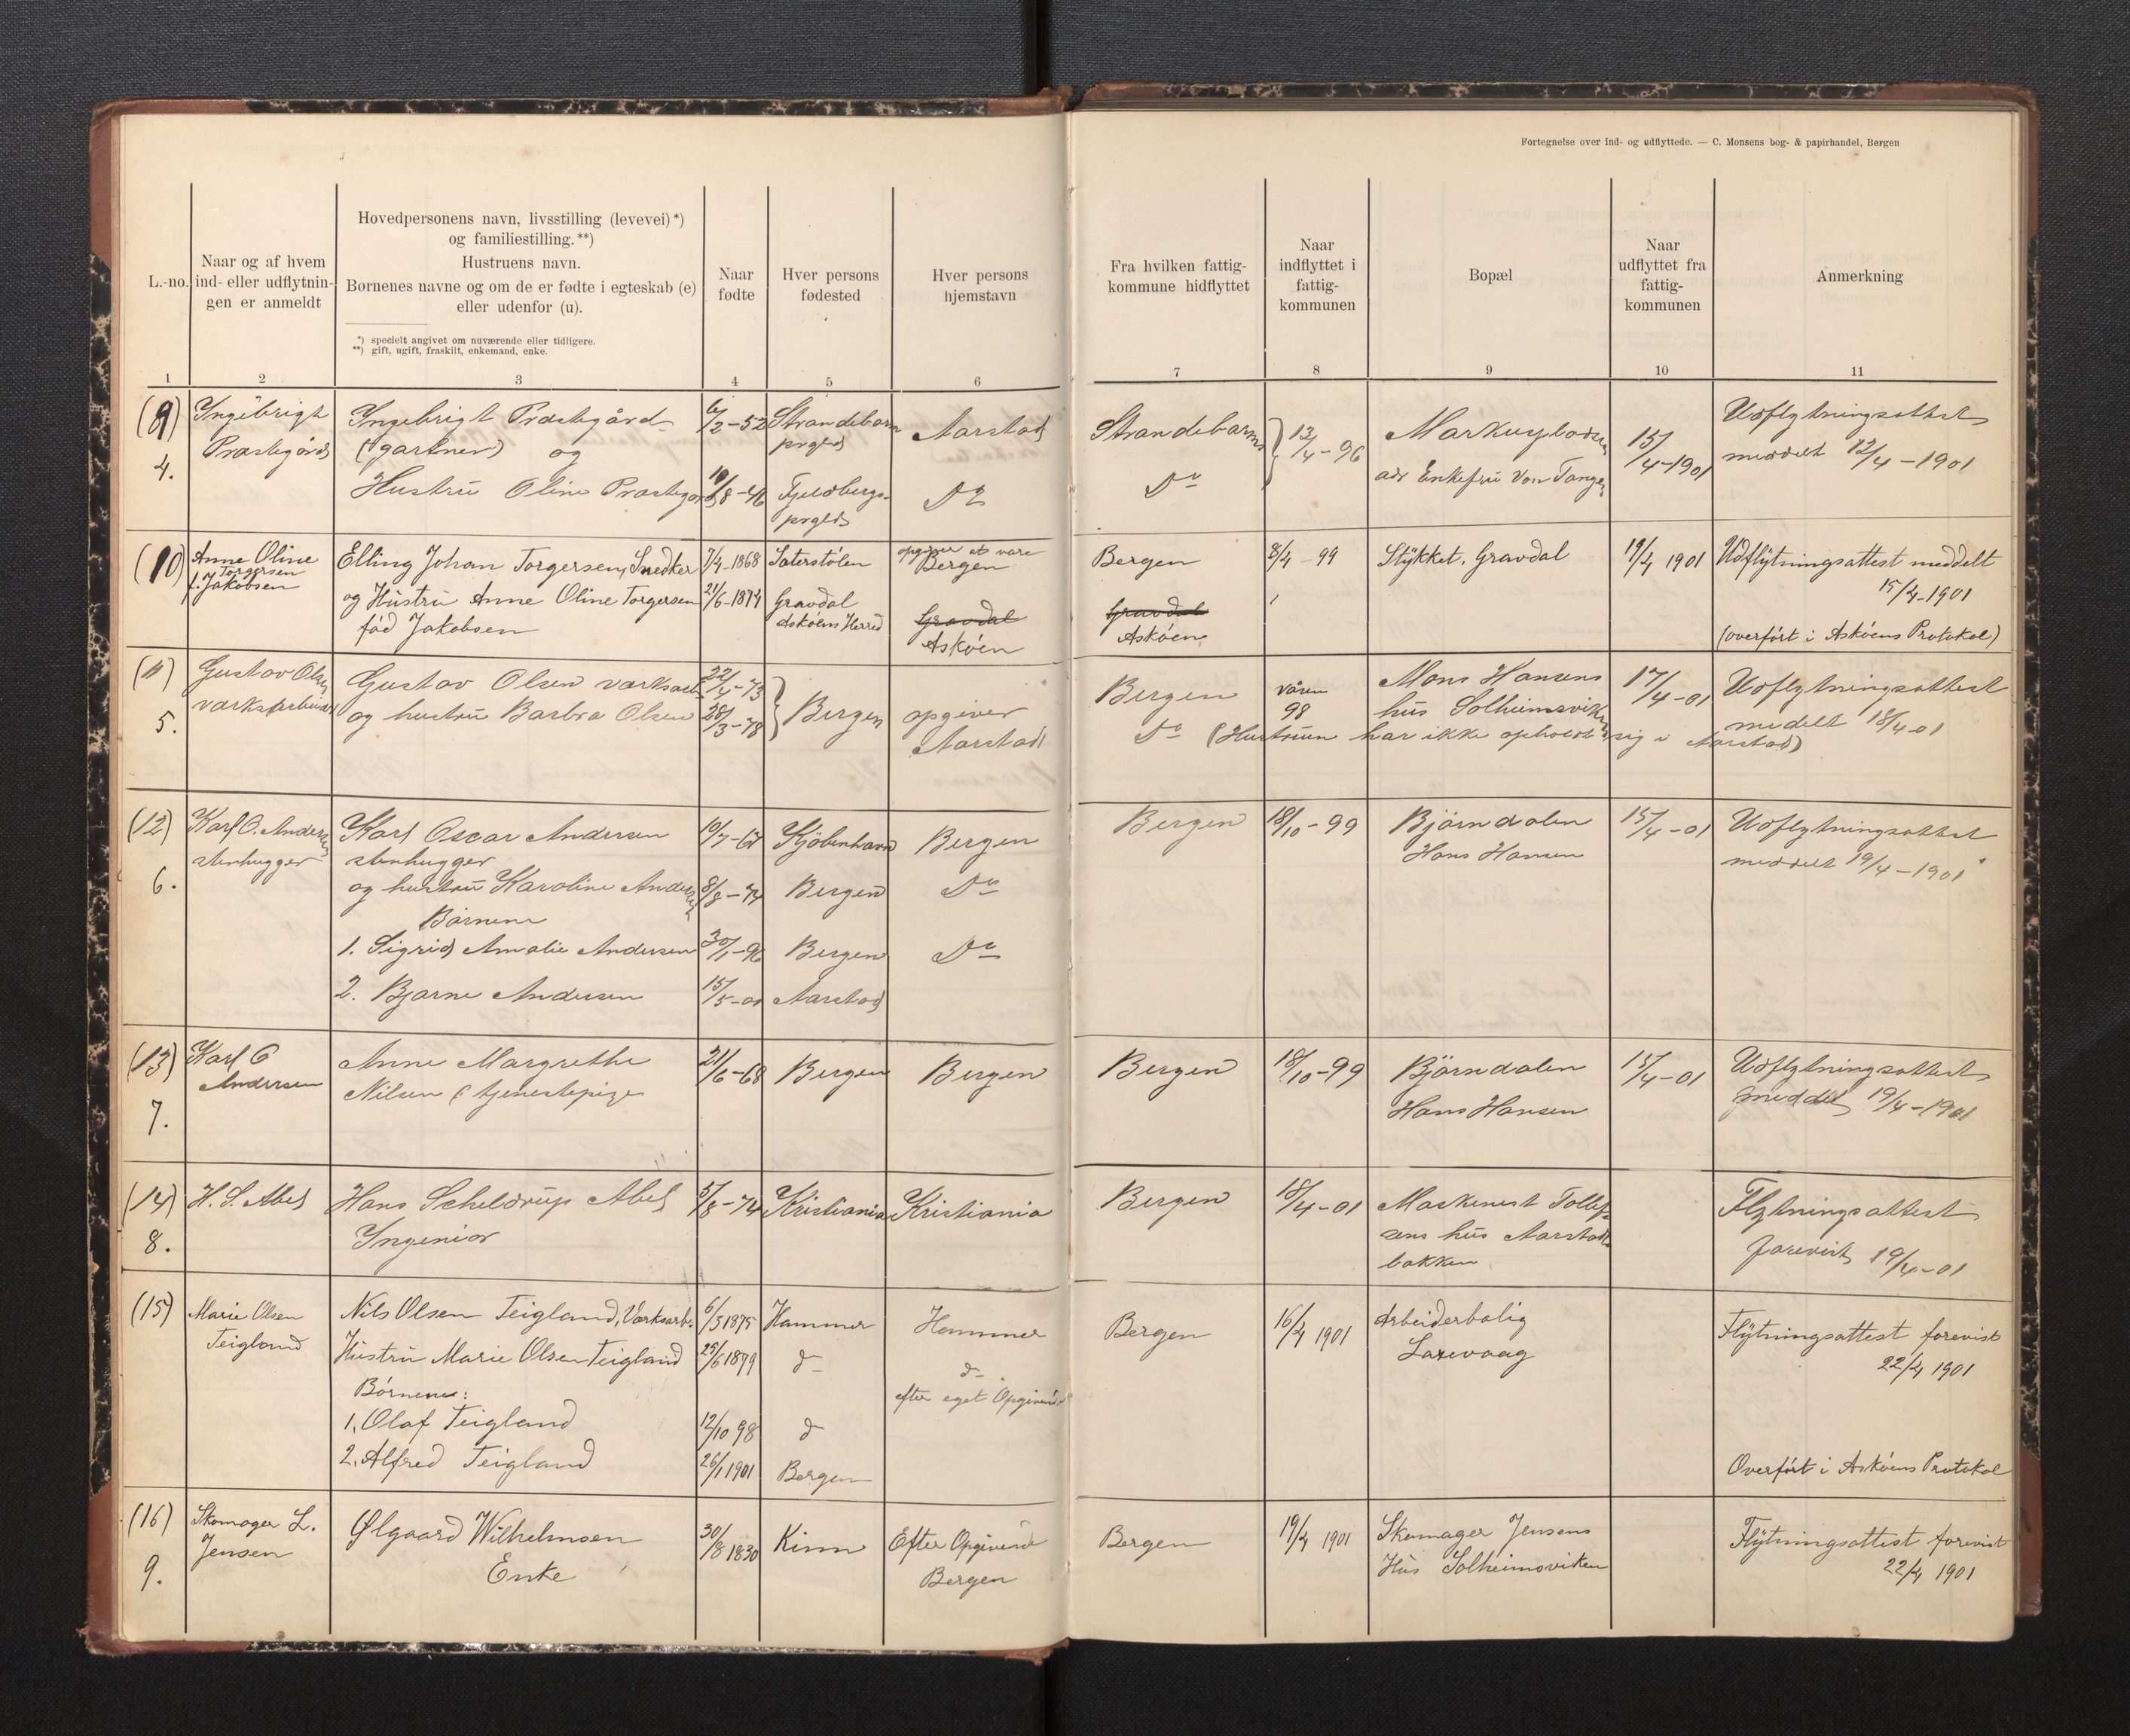 Fortegnelse over ind- og udflyttede. — C. Monsens bog- & papirhandel, Bergen
L.-no.
Naar og af hvem
ind- eller udflytnin-
gen er anmeldt
Hovedpersonens navn, livsstilling (levevei)*)
og familiestilling.**)
Hustruens navn.
Børnenes navne og om de er fødte i egteskab (e)
eller udenfor (u).
*) specielt angivet om nuværende eller tidligere.
**) gift, ugift, fraskilt, enkemand, enke.
Naar
fødte
Hver persons
fødested
Hver persons
hjemstavn
Fra hvilken fattig-
kommune hidflyttet
Naar
indflyttet i
fattig-
kommunen
Bopæl
Naar
udflyttet fra
fattig-
kommunen
Anmerkning
1 2 3 4 5 6 7 8 9 10 11
(9)
4.
Yngebrigt
Præstegård
Yngebrigt Præstegård
(gartner) og
Hustru Oline Præstegård
6/2-52
19/8-46
Strandebarm
prgld
Fjeldbergs-
prgld
Aarstad
Do
Strandebarm
Do
13/4-96
adr Enkefru Von Tangen
15/4-1901
Udflytningsattest
meddelt 12/4-1901
(10)
Anne Oline
Torgersen
f. Jakobsen
Elling Johan Torgersen, Snedker
og Hustru Anne Oline Torgersen
fød Jakobsen
7/4-1868
21/6-1874
Sæterstølen
Gravdal
Askøens Herred
opgiver at være
Bergen
Gravdal
Askøen
Bergen
Gravdal
Askøen
8/4-99
Stykket, Gravdal
19/4 1901
Udflytningsattest meddelt
15/4-1901
(overført i Askøens Protokol)
(11)
5.
Gustav Olsen
værksarbeider
Gustav Olsen værksarb
og hustru Barbra Olsen
22/4-73
28/3-78
Bergen
opgiver
Aarstad
Bergen
Do (Hustruen har ikke opholdt sig i Aarstad)
våren
98
Mons Hansens
hus Solheimsviken
17/4-01
Udflytningsattest
medelt 18/4-01
(12)
6.
Karl O. Andersen
stenhugger
Karl Oscar Andersen
stenhugger
og hustru Karoline Andersen
Børnene
1. Sigrid Amalie Andersen
2. Bjarne Andersen
19/7-67
8/8-74
30/1-96
15/5-00
Kjøbenhavn
Bergen
Bergen
Aarstad
Bergen
Do
Do
Bergen
18/10-99
Björndalen
Hans Hansen
15/4-01
Udflytningsattest
meddelt 19/4-1901
(13)
7.
Karl O
Andersen
Anne Margrethe
Nilsen (tjenestepige
21/6-68
Bergen
Bergen
Bergen
18/10-99
Björndalen
Hans Hansen
15/4-01
Udflytningsattest
meddelt 19/4-1901
(14)
8.
H. S. Abel
Hans Scheldrup Abel
Yngeniør
5/8-74
Kristiania
Kristiania
Bergen
18/4-01
Maskenist Tollef-
sens hus Aarstad-
bakken
Flytningsattest
forevist 19/4-01
(15)
Marie Olsen
Teigland
Nils Olsen Teigland, Værksarb.
Hustru Marie Olsen Teigland
Børnene:
1. Olaf Teigland
2. Alfred Teigland
6/3 1875
25/6 1879
12/10 98
26/1 1901
Hammer
do
do
Bergen
Hammer
do
efter eget Opgivende
Bergen
16/4 1901
Arbeiderbolig
Laxevaag
Flytningsattest forevist
22/4 1901
Overført i Askøens Protokol
(16)
9.
Skomager L.
Jensen
Ølgaard Wilhelmsen
Enke
30/8 1830
Kinn
Efter Opgivende
Bergen
Bergen
19/4 1901
Skomager Jensens
Hus Solheimsviken
Flytningsattest forevist
22/4 1901